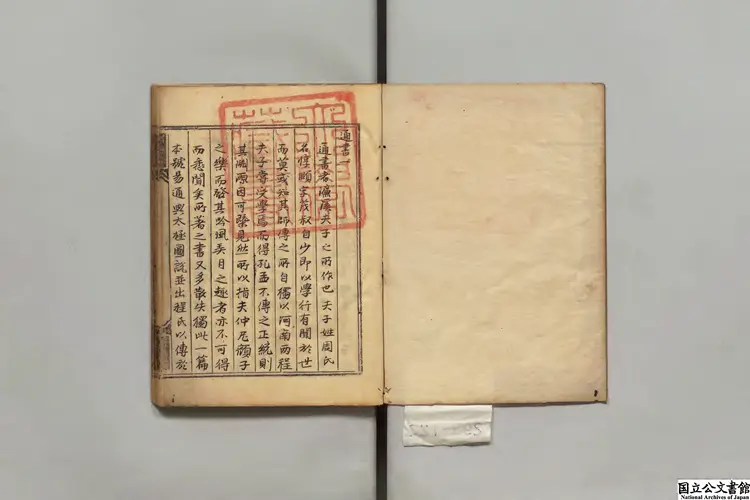 通書一
通書者濂溪夫子之所作也夫子姓周氏
名惇頤字茂叔自少即以學行有聞於世
而莫或知其師傳之所自獨以河南兩程
夫子嘗受學焉而得孔孟不傳之正統則
其淵源因可槩見然所以指夫仲尼顔子
之樂而發其吟風弄月之趣者亦不可得
而悉聞矣所著之書又多散失獨此一篇
本號易通與太極圖說並出程氏以傳於
国立公文書館
National Archives of Japan